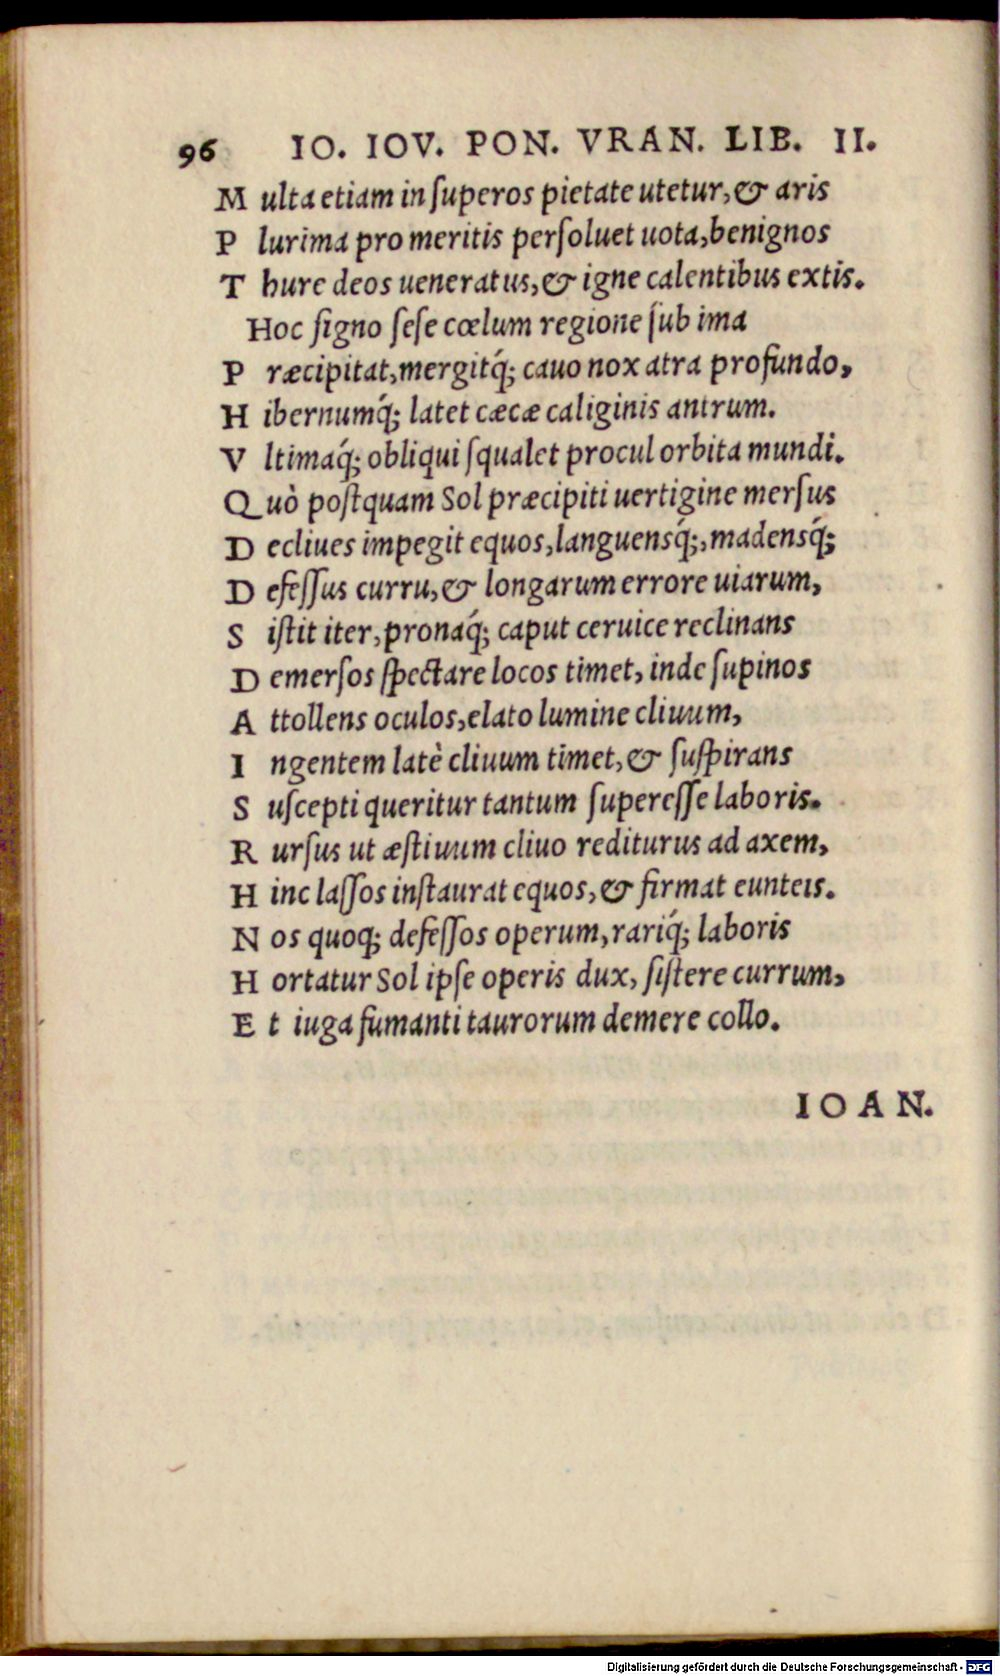 96 IO. IOV. PON. VRAN. LIB. II.
M ulta etiam in ſuperos pietate utetur, & aris
P lurima pro meritis perſoluet uota, benignos
T hure deos ueneratus, & igne calentibus extis.
Hoc ſigno ſeſe cœlum regione ſub ima
P ræcipitat, mergitq́; cauo nox atra profundo,
H ibernumq́; latet cæcæ caliginis antrum.
V ltimaq́; obliqui ſqualet procul orbita mundi.
Q uò poſtquam Sol præcipiti uertigine merſus
D ecliues impegit equos, languensq́;, madensq́;
D efeſſus curru, & longarum errore uiarum,
S iſtit iter, pronaq́; caput ceruice reclinans
D emerſos ſpectare locos timet, inde ſupinos
A ttollens oculos, elato lumine cliuum,
I ngentem latè cliuum timet, & ſuſpirans
S uſcepti queritur tantum ſupereſſe laboris.
R urſus ut æſtiuum cliuo rediturus ad axem,
H inc laſſos inſtaurat equos, & firmat eunteis.
N os quoq; defeſſos operum, rariq́; laboris
H ortatur Sol ipſe operis dux, ſiſtere currum,
E t iuga fumanti taurorum demere collo.
IOAN.
Digitalisierung gefördert durch die Deutsche Forschungsgemeinschaft - DFG